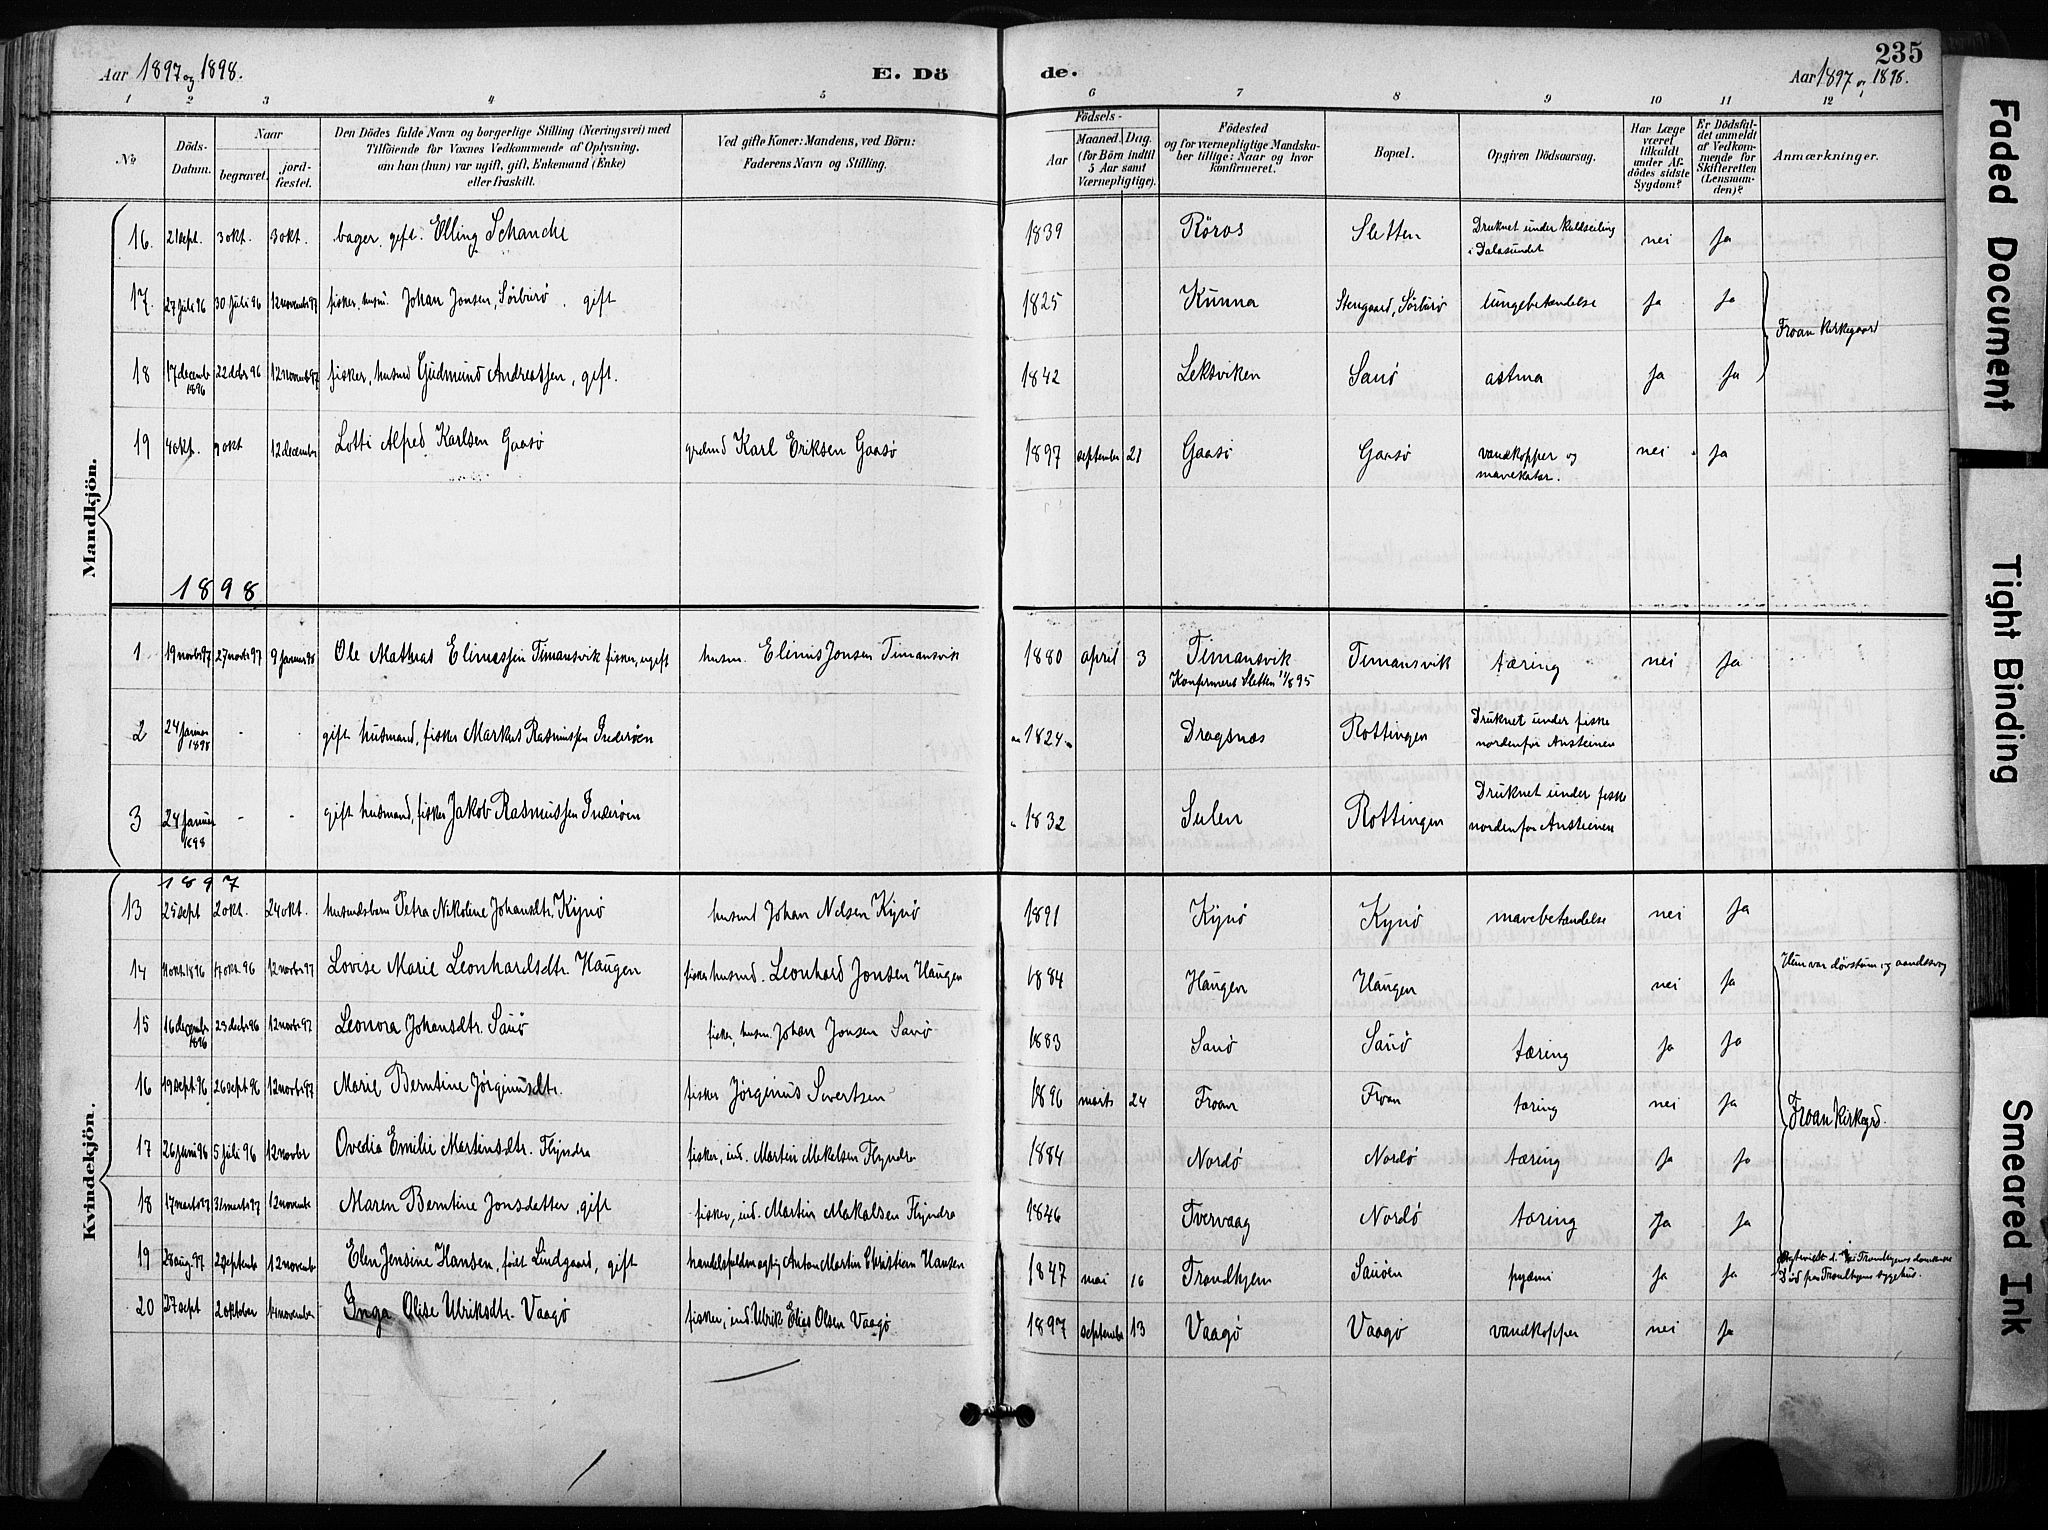 Aar 1897 og 1898.
E. Dö
de.
Aar 1897 og 1898.
235
1 2 3 4 5 6 7 8 9 10 11 12
No
Döds-
Datum.
Naar
begravet.
jord-
fæstet.
Den Dödes fulde Navn og borgerlige Stilling (Næringsvei) med
Tilföiende for Voxnes Vedkommende af Oplysning,
om han (hun) var ugift, gift, Enkemand (Enke)
eller fraskilt.
Ved gifte Koner: Mandens, ved Börn:
Faderens Navn og Stilling.
Födsels-
Aar
Maaned. Dag.
(for Börn indtil
5 Aar samt
Værnepligtige).
Födested
og for værnepligtige Mandska-
ber tillige: Naar og hvor
konfirmeret.
Bopæl.
Opgiven Dödsaarsag.
Har Læge
været
tilkaldt
under Af-
dödes sidste
Sygdom?
Er Dödsfal-
det anmeldt
af Vedkom-
mende for
Skifteretten
(Lensman-
den)?
Anmærkninger.
Mandkjön.
16. 21 sept. 3 okt. 3 okt. bager. gift. Elling Schanche 1839 Röros Sletten Druknet under kuldseiling
i Dalasundet nei ja
17. 27 juli 96 30 juli 96 12 november 97 fisker, husm. Johan Jonsen, Sörburö. gift 1825 Kunna Stengaard, Sörburø lungebetændelse ja ja
Froan kirkegaard
18 17 decemb 1896 22 dcbr 96 12 novemb 97 fisker, husmd Gudmund Andreassen, gift. 1842 Leksviken Sauø astma ja ja
19 4 okt. 9 okt 12 december Lotti Alfred Karlsen Gaasø grdmd Karl Eriksen Gaasø 1897 september 21 Gaasø Gaasø vandkopper og
mavekatar. nei ja
1898
1 19 novbr 97 27 novbr 97 9 januar 98 Ole Mathias Elimassen Timansvik fisker, ugift husm. Elimis Jonsen Timansvik 1880 april 3 Timansvik
Konfirmeret Sletten 11/8 95 Timansvik tæring nei ja
2 24 januar 1898 - - gift husmand, fisker Markus Rasmussen Inderøen 1824 Dragsnæs Rottingen Druknet under fiske
nordenfor Ansteinen
3 24 januar 1898 - - gift husmand, fisker Jakob Rasmussen Inderøen 1832 Sulen Rottingen Druknet under fiske
nordenfor Ansteinen
Kvindekjön.
1897
13 25 sept 2 okt. 24 okt. husmdsbarn Petra Nikoline Johansdtr. Kjynø husmd Johan Nelsen Kjynø 1891 Kjynø Kjynø mavebetændelse nei ja
14 11 okt 1896 17 okt. 96 12 novbr 97 Lovise Marie Leonhardsdtr. Haugen fisker husmd. Leonhard Jonsen Haugen 1884 Haugen Haugen nei ja Hun var døvstum og aandssvag
15 16 december 1896 23 decbr 96 12 novbr 97 Leonora Johansdtr. Sauø fisker, husm. Johan Jonsen Sauø 1883 Sauø Sauø tæring ja ja
16 19 sept 96 26 sept 96 12 novbr 97 Marie Berntine Jørginusdtr. fisker Jørginus Sivertsen 1896 marts 24 Froan Froan tæring nei ja
Froan kirkegrd.
17 26 juni 96 5 juli 96 12 novbr Ovedia Emilie Martinsdtr. Flyndra fisker, ind. Martin Mekalsen Flyndra 1884 Nordø Nordø tæring ja ja
18 17 marts 97 31 marts 97 12 novembr Maren Berntine Jonsdatter, gift fisker, ind. Martin Mekalsen Flyndra 1846 Tvervaag Nordø tæring ja ja
19 28 aug. 97 2 septembr 12 novembr Elen Jensine Hansen, født Lindgaard, gift handelsfuldmægtig Anton Martin Christian Hansen 1847 mai 16 Trondhjem Sauøen pyæmi ja ja
Død paa Trondhjems sygehus.
20 27 sept 2 oktober 14 november Inga Olise Ulriksdtr. Vaagø fisker, ind. Ulrik Elias Olsen Vaagø 1897 september 13 Vaagø Vaagø vandkopper nei ja
Faded Document
Tight Binding
Smeared Ink